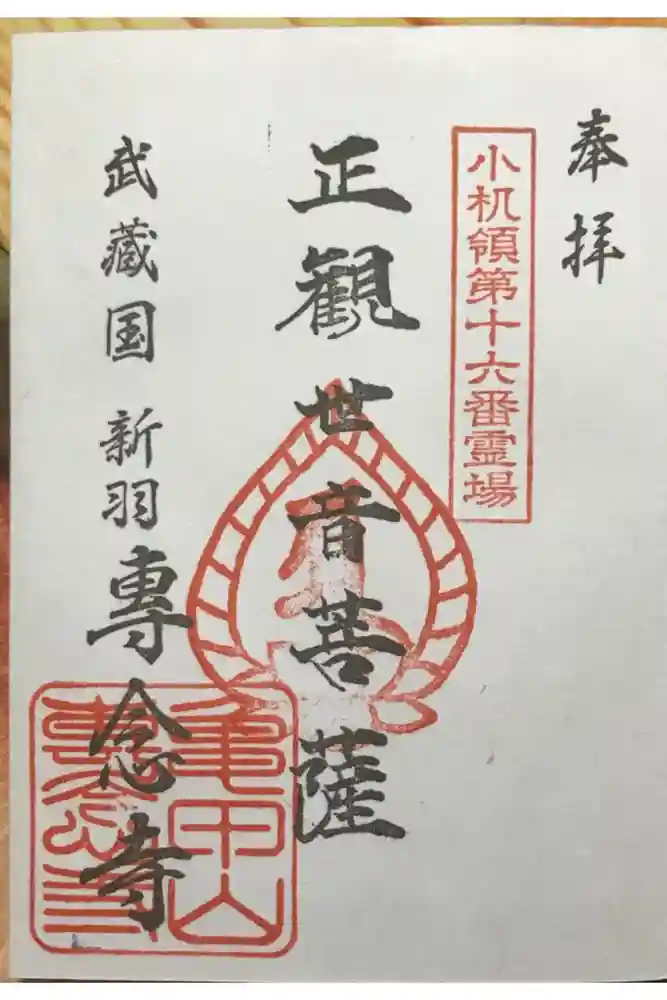 奉拝
小机領第十六番霊場
正観世音菩薩
武蔵国 新羽 專念寺
亀甲山
專念寺